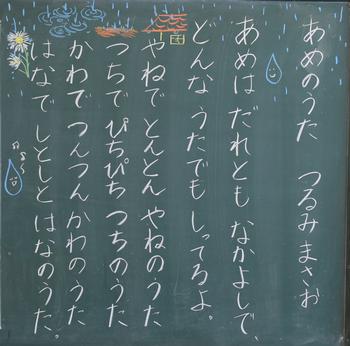 あめのうた　つるみまさお
あめは　だれとも　なかよしで、
どんな　うたでも　しってるよ。
やねで　とんとん　やねのうた
つちで　ぴちぴち　つちのうた
かわで　つんつん　かわのうた
はなで　しとしと　はなのうた。